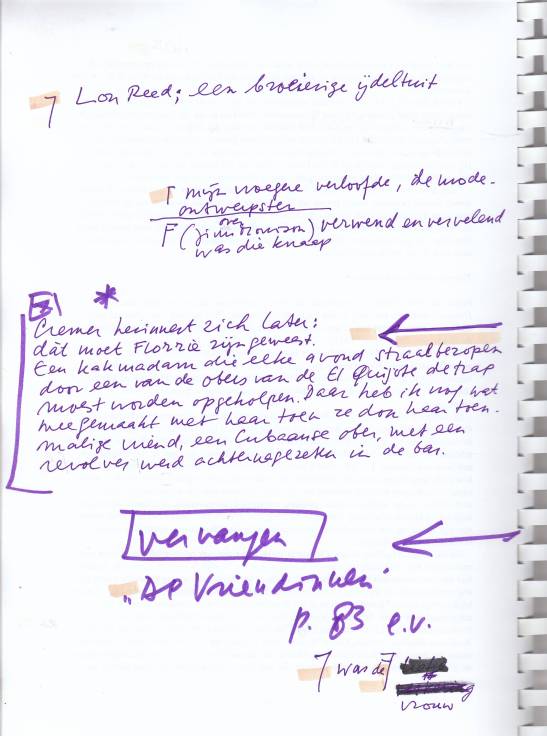 7 Lou Reed; een broeierige ijdeltuit
┌ mijn vroegere verloofde, de mode-
ontwerpster
F (over Jim Morrison) verwend en vervelend
was die knaap
E1 *
Cremer herinnert zich later:
dàt moet Florrie zijn geweest.
Een kakmadam die elke avond straalbezopen
door een van de obers van de El Quijote de trap
moest worden opgeholpen. Daar heb ik nog wat
meegemaakt met haar toen ze door haar toen-
malige vriend, een Cubaanse ober, met een
revolver werd achternagezeten in de bar.
vervangen
"De Vriendinnen"
p. 83 e.v.
7 was de 7
vrouw